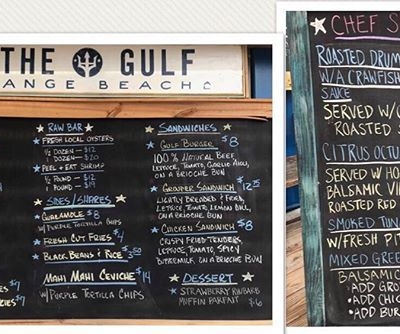 THE GULF
ANGE BEACH
RAW BAR
FRESH LOCAL OYSTERS
½ DOZEN - $12
1 DOZEN - $20
PEEL & EAT SHRIMP
½ POUND - $12
1 POUND - $19
SIDES/SHARES
GUACAMOLE $8
W/PURPLE TORTILLA CHIPS
FRESH CUT FRIES $4
BLACK BEANS & RICE $3.50
MAHI MAHI CEVICHE $14
W/PURPLE TORTILLA CHIPS
SANDWICHES
GULF BURGER $8
100% NATURAL BEEF,
LETTUCE, TOMATO, GARLIC AIOLI,
ON A BRIOCHE BUN
GROUPER SANDWICH $12.95
LIGHTLY BREADED & FRIED,
LETTUCE, TOMATO, LEMON AIOLI,
ON A BRIOCHE BUN
CHICKEN SANDWICH $8
CRISPY FRIED TENDERS,
LETTUCE, TOMATO, SPICY
BUTTERMILK, ON A BRIOCHE BUN
DESSERT
STRAWBERRY RHUBARB
MUFFIN PARFAIT $6
CHEF S
ROASTED DRUM
W/A CRAWFISH
SAUCE
SERVED W/
ROASTED S
CITRUS OCTU
SERVED W/ HO
BALSAMIC VI
ROASTED RED
SMOKED TUN
W/FRESH PIT
MIXED GREE
BALSAMIC
+ADD GRO
+ADD CHIC
+ADD BUR